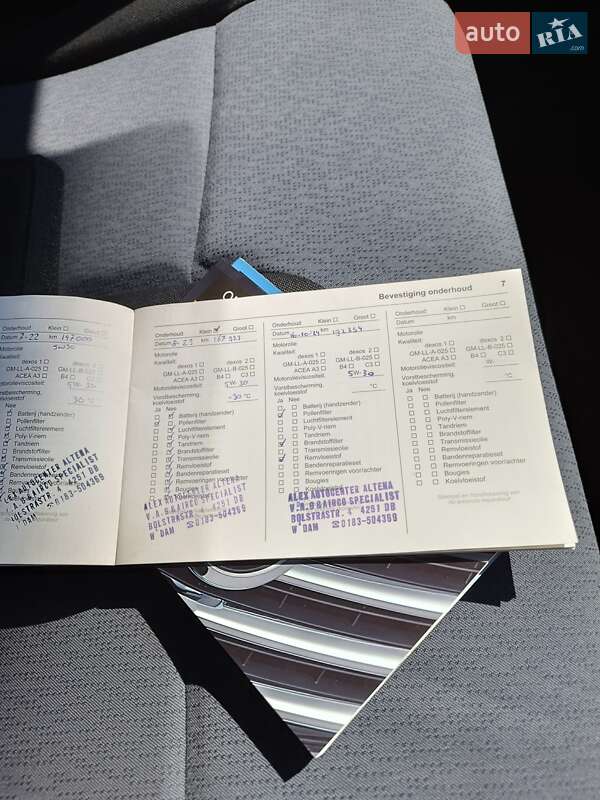 auto RIA .com
Bevestiging onderhoud 7
Onderhoud Klein ☐ Groot ☐
Datum 2-22 km 147000
Motorolie 5W30
Kwaliteit:
dexos 1 ☐ dexos 2 ☐
GM-LL-A-025 ☐ GM-LL-B-025 ☐
ACEA A3 ☐ B4 ☐ C3 ☐
Motorolieviscositeit
Vorstbescherming, koelvloeistof -30 °C
Ja Nee
Batterij (handzender)
Pollenfilter
Luchtfilterelement
Poly-V-riem
Tandriem
Brandstoffilter
Transmissieolie
Remvloeistof
ALEX AUTOCENTER ALTENA
V.A.G & AIRCO SPECIALIST
BOLSTRASTR. 4 4251 DB
W'DAM ☎0183-504369
Onderhoud Klein ☑ Groot ☐
Datum km
Motorolie
Kwaliteit:
dexos 1 ☐ dexos 2 ☐
GM-LL-A-025 ☐ GM-LL-B-025 ☐
ACEA A3 ☐ B4 ☐ C3 ☐
Motorolieviscositeit 5W30
Vorstbescherming, koelvloeistof -30 °C
Ja Nee
Batterij (handzender)
Pollenfilter
Luchtfilterelement
Poly-V-riem
Tandriem
Brandstoffilter
Transmissieolie
Remvloeistof
Bandenreparatieset
Remvoeringen voor/achter
Bougies
Koelvloeistof
ALEX AUTOCENTER ALTENA
V.A.G & AIRCO SPECIALIST
BOLSTRASTR. 4 4251 DB
W'DAM ☎0183-504369
Onderhoud Klein ☐ Groot ☐
Datum km 172354
Motorolie
Kwaliteit:
dexos 1 ☐ dexos 2 ☐
GM-LL-A-025 ☐ GM-LL-B-025 ☐
ACEA A3 ☐ B4 ☐ C3 ☐
Motorolieviscositeit 5W-30
Vorstbescherming, koelvloeistof °C
Ja Nee
Batterij (handzender)
Pollenfilter
Luchtfilterelement
Poly-V-riem
Tandriem
Brandstoffilter
Transmissieolie
Remvloeistof
Bandenreparatieset
Remvoeringen voor/achter
Bougies
Koelvloeistof
ALEX AUTOCENTER ALTENA
V.A.G & AIRCO SPECIALIST
BOLSTRASTR. 4 4251 DB
W'DAM ☎0183-504369
Onderhoud Klein ☐ Groot ☐
Datum km
Motorolie
Kwaliteit:
dexos 1 ☐ dexos 2 ☐
GM-LL-A-025 ☐ GM-LL-B-025 ☐
ACEA A3 ☐ B4 ☐ C3 ☐
Motorolieviscositeit W-
Vorstbescherming, koelvloeistof °C
Ja Nee
Batterij (handzender)
Pollenfilter
Luchtfilterelement
Poly-V-riem
Tandriem
Brandstoffilter
Transmissieolie
Remvloeistof
Bandenreparatieset
Remvoeringen voor/achter
Bougies
Koelvloeistof